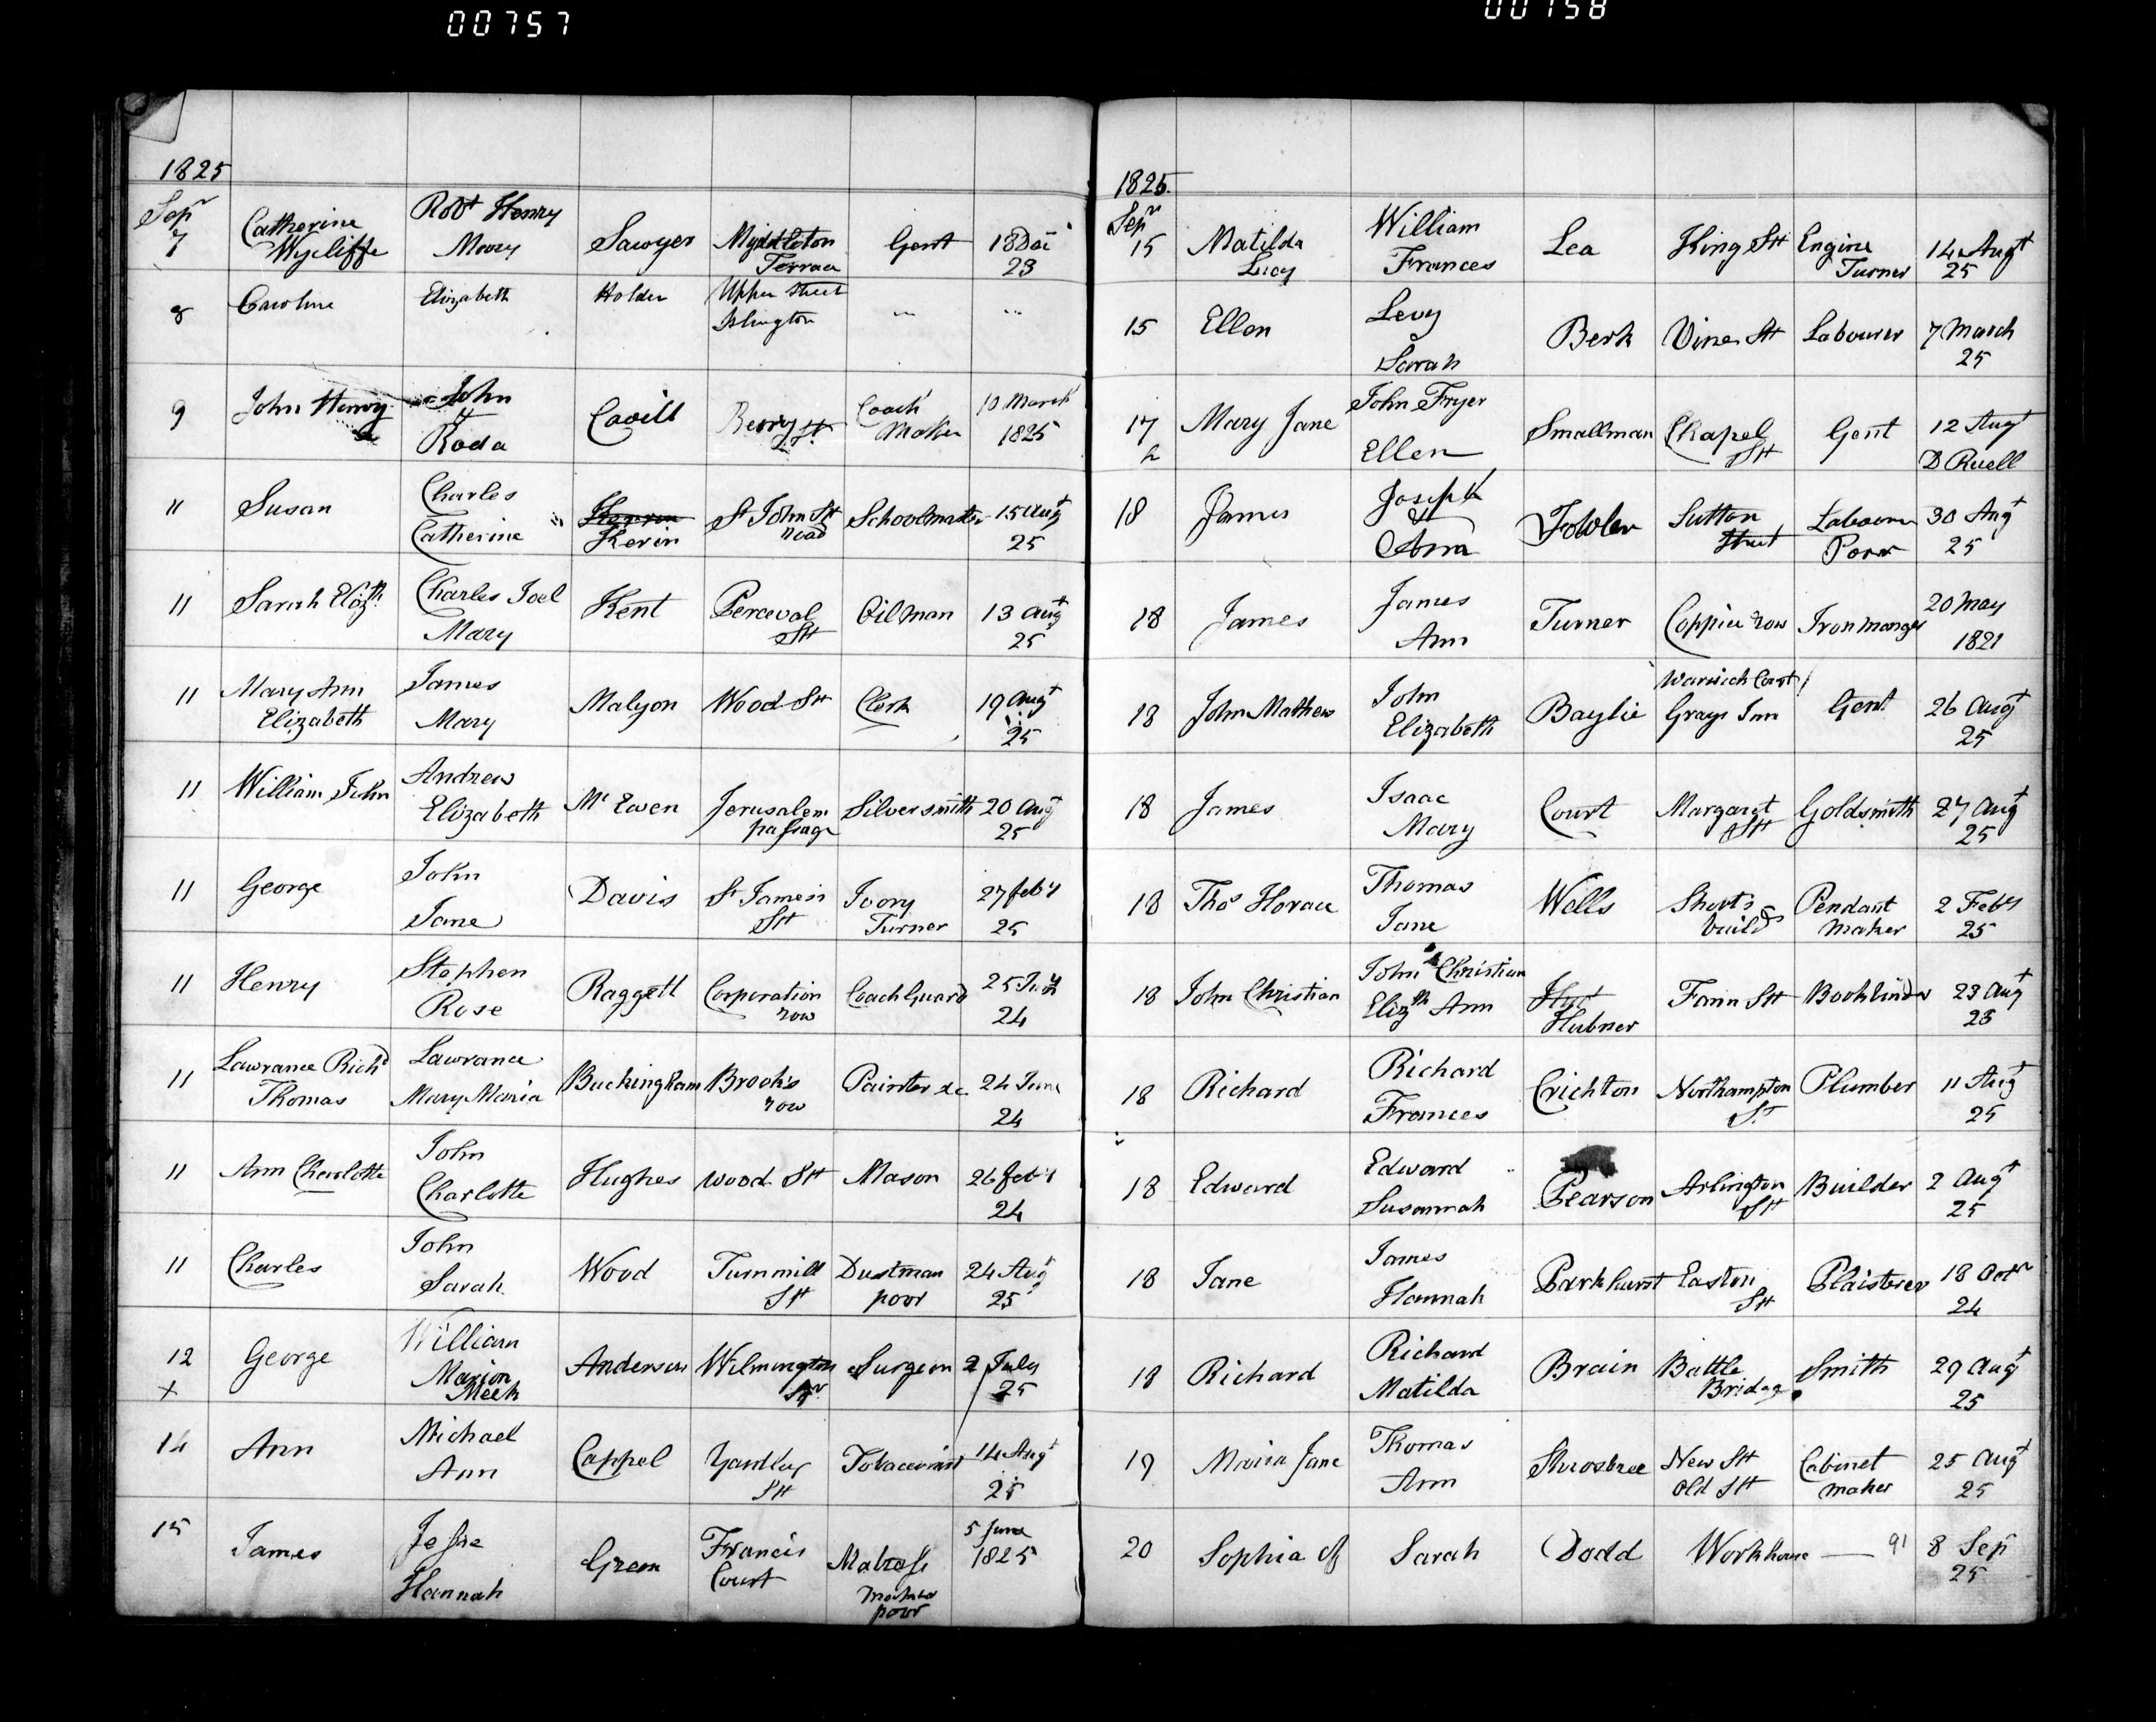 00757
00758
1825
Sepr
7 Catherine Wycliffe Robt Henry Mary Sawyer Myddleton Terrace Gent 18 Dec 23
8 Caroline Elizabeth Holder Upper Street Islington " "
9 John Henry John & Roda Cavill Berry St Coach Maker 10 March 1825
11 Susan Charles Catherine Kerrin Kerin St John St road Schoolmaster 15 Augt 25
11 Sarah Elizth Charles Joel Mary Kent Perceval St Oilman 13 Augt 25
11 Mary Ann Elizabeth James Mary Malyon Wood St Clerk 19 Augt 25
11 William John Andrew Elizabeth Mc Ewen Jerusalem passage Silversmith 20 Augt 25
11 George John Jane Davis St James's St Ivory Turner 27 feby 25
11 Henry Stephen Rose Raggett Corporation row Coach Guard 25 24
11 Lawrance Richd Thomas Lawrance Mary Maria Buckingham Brook's row Painter &c 24 June 24
11 Ann Charlotte John Charlotte Hughes Wood St Mason 26 feby 24
11 Charles John Sarah Wood Turnmill St Dustman poor 24 Augt 25
12 x George William Marion Meek Anderson Wilmington Sqr Surgeon 2 July 25
14 Ann Michael Ann Cappel Yardley St Tobacconist 14 Augt 25
15 James Jesse Hannah Green Francis Court Matrass Maker poor 5 June 1825
1825.
Sepr
15 Matilda Lucy William Frances Lea King St Engine Turner 14 Augt 25
15 Ellen Levy Sarah Berk Vine St Labourer 7 March 25
17 Mary Jane John Fryer Ellen Smallman Chapel St Gent 12 Augt D Ruell
18 James Joseph & Ann Fowler Sutton Street Labourer Poor 30 Augt 25
18 James James Ann Turner Coppice row Ironmonger 20 May 1821
18 John Mathew John Elizabeth Baylie Warwick Court Grays Inn Gent 26 Augt 25
18 James Isaac Mary Court Margaret St Goldsmith 27 Augt 25
18 Thos Horace Thomas Jane Wells Short's builds Pendant maker 2 Feby 25
18 John Christian John Christian Elizth Ann Hubner Fann St Bookbinder 23 Augt 25
18 Richard Richard Frances Crichton Northampton St Plumber 11 Augt 25
18 Edward Edward Susannah Pearson Arlington St Builder 2 Augt 25
18 Jane James Hannah Parkhurst Easton St Plaisterer 18 Octr 24
18 Richard Richard Matilda Brain Battle Bridge Smith 29 Augt 25
19 Maria Jane Thomas Ann Shrosbree New St Old St Cabinet maker 25 Augt 25
20 Sophia of Sarah Dodd Workhouse — 91 8 Sep 25